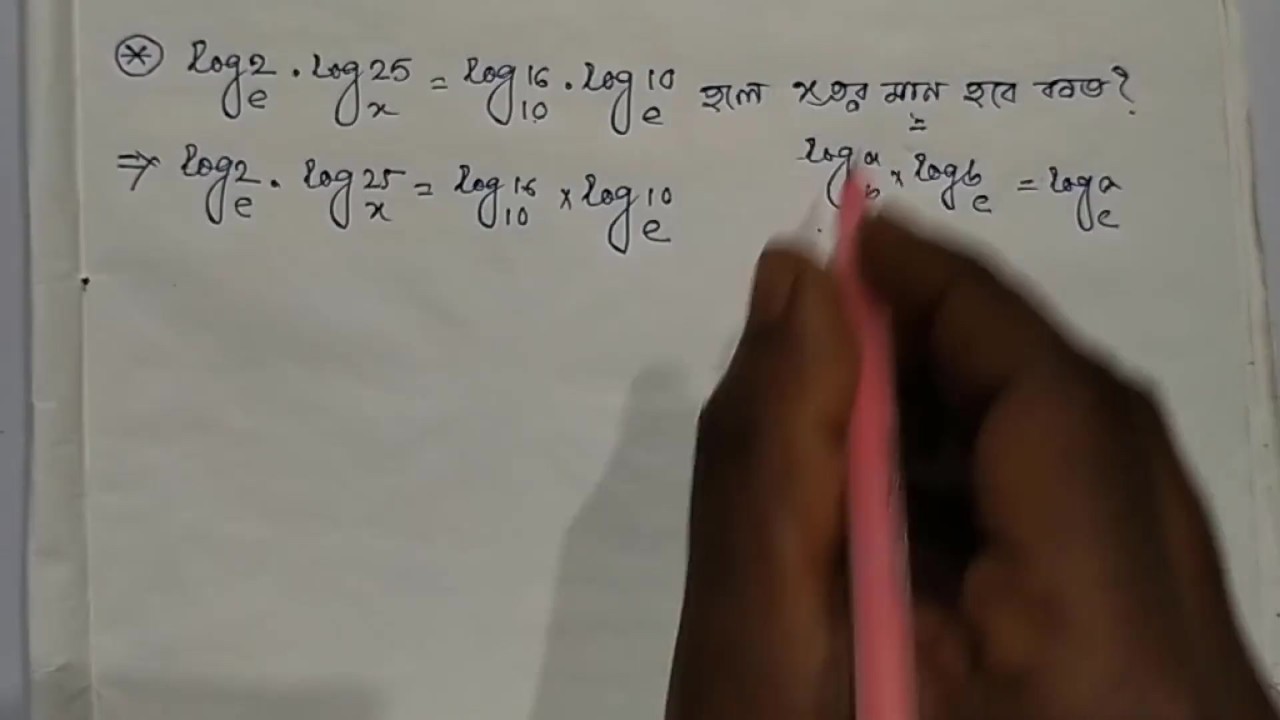 ⊛ log_e 2 . log_x 25 = log_10 16 . log_e 10 হলে x এর মান হবে কত?
⇒ log_e 2 . log_x 25 = log_10 16 × log_e 10
log_b a × log_c b = log_c a